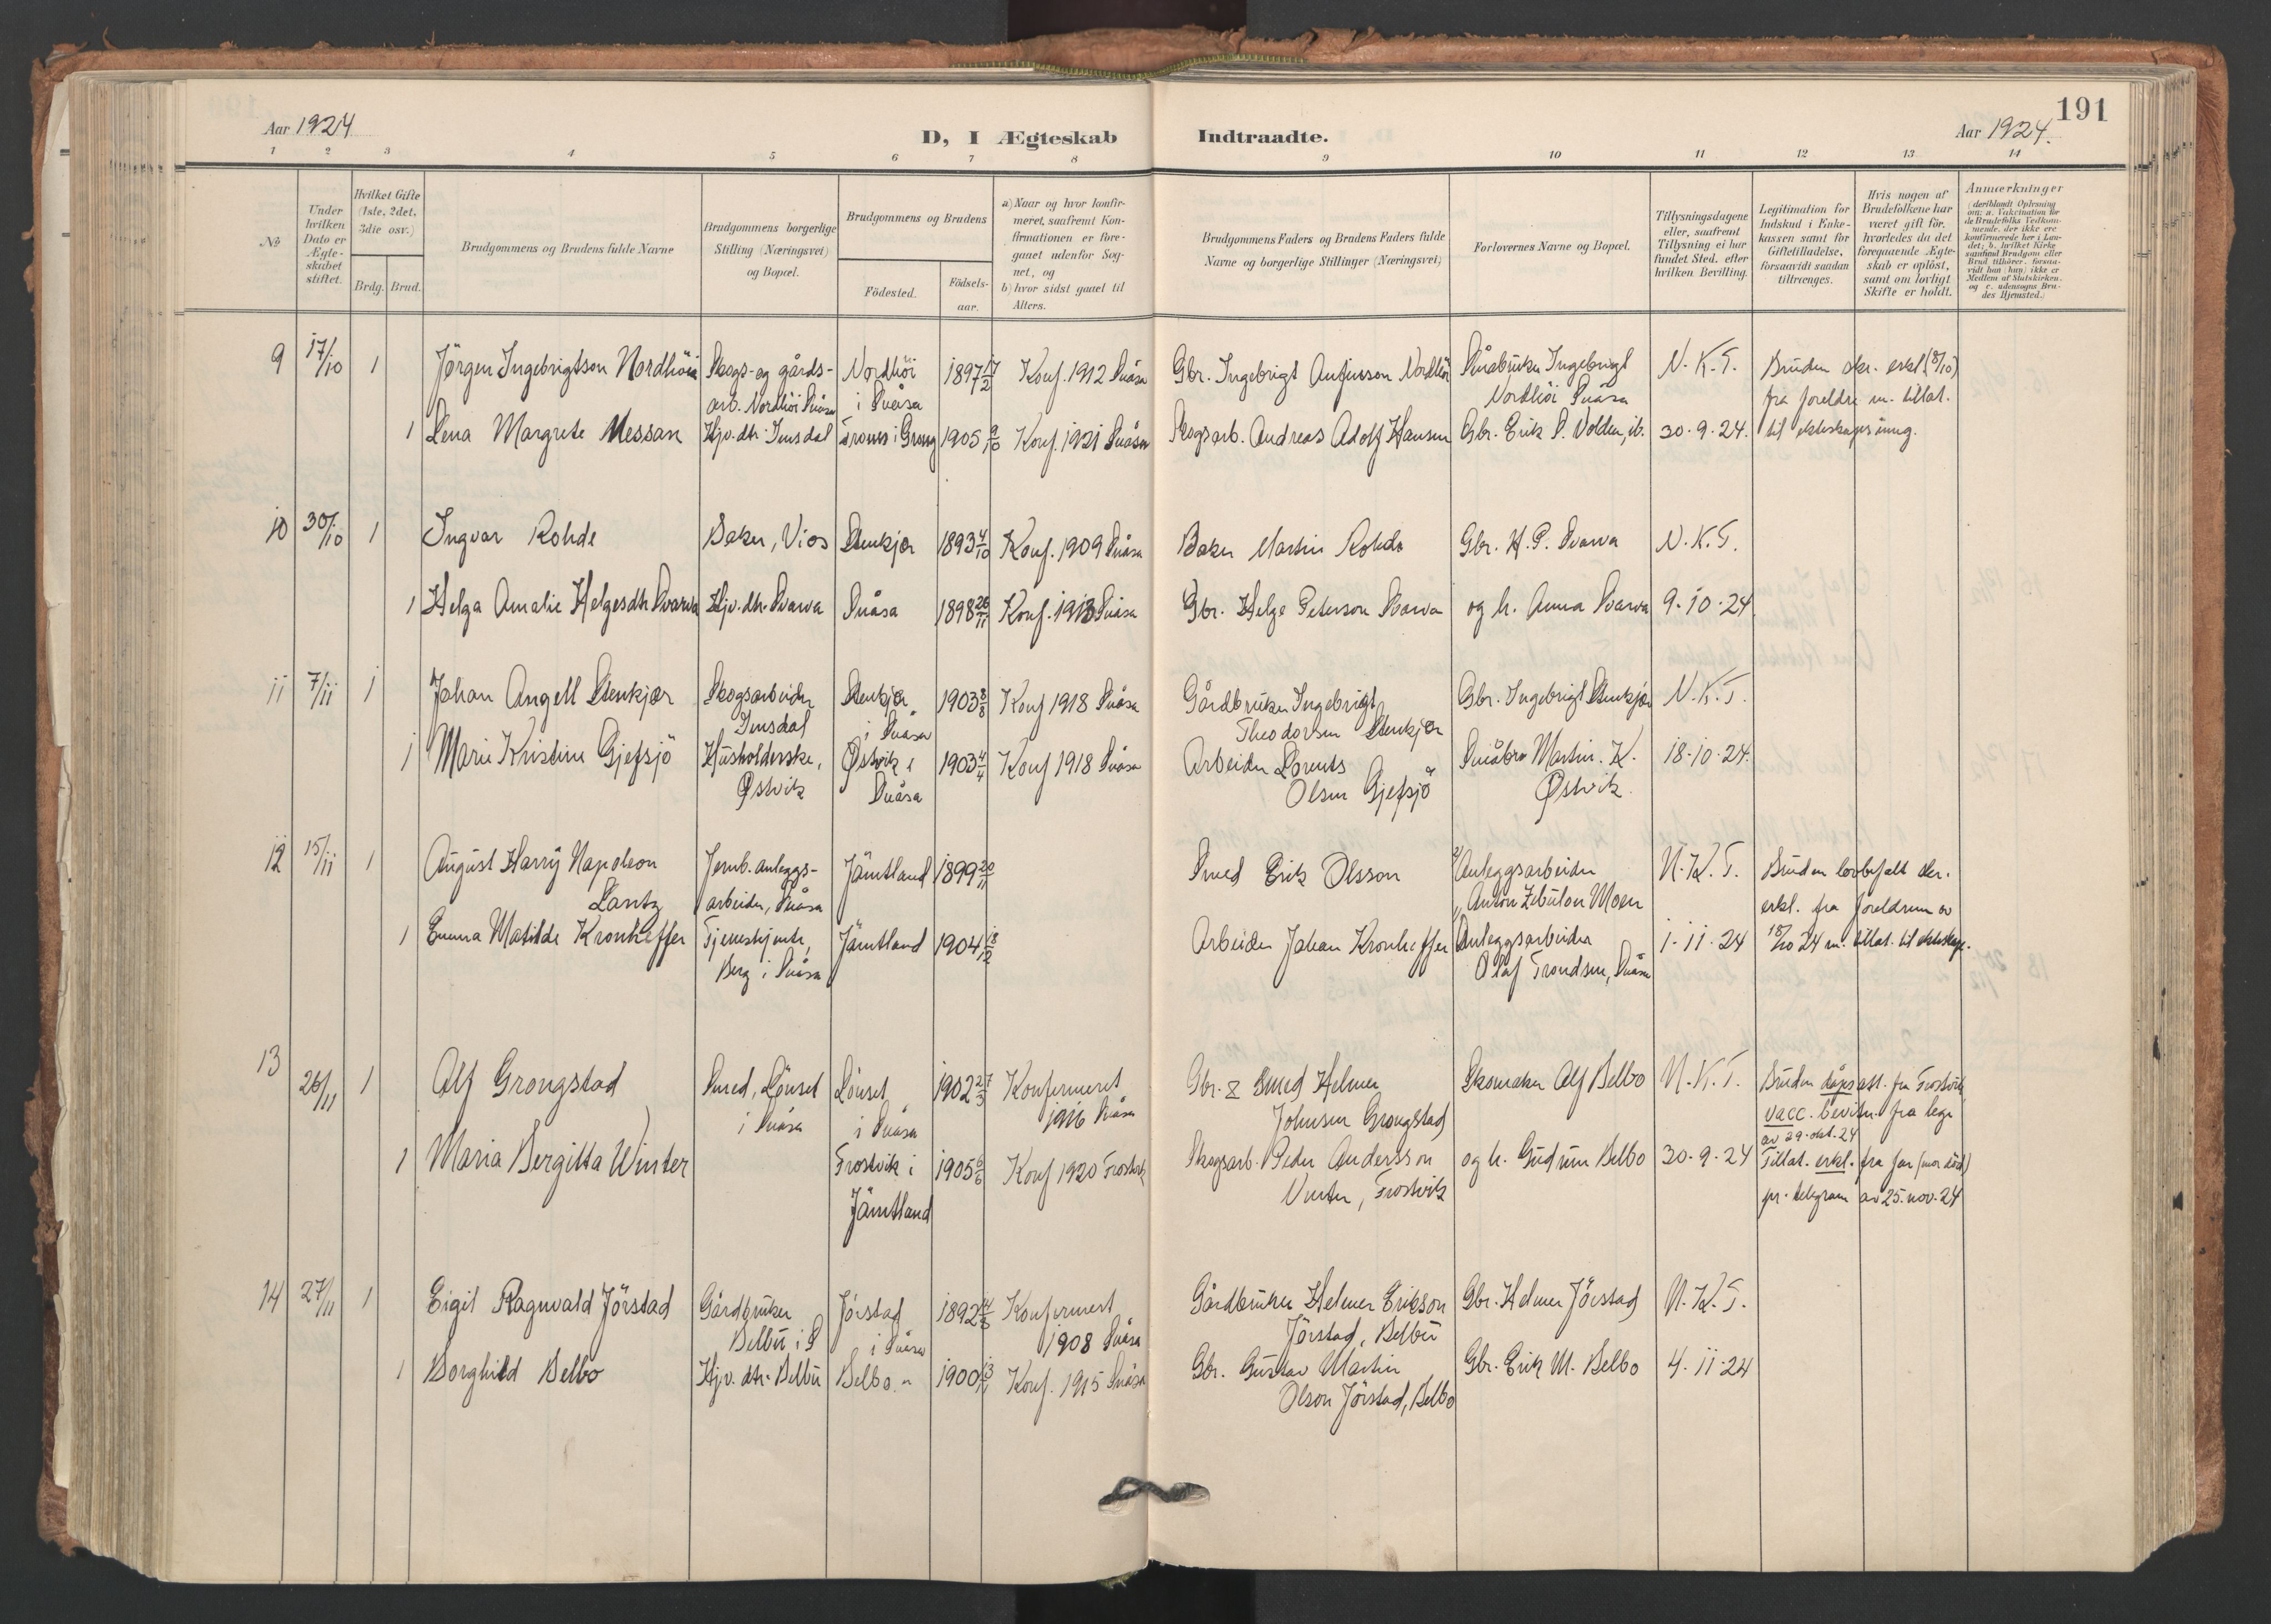 Aar 1924
D, I Ægteskab Indtraadte.
Aar 1924.
191
1 2 3 4 5 6 7 8 9 10 11 12 13 14
No
Under
hvilken
Dato er
Ægte-
skabet
stiftet.
Hvilket Gifte
(1ste, 2det,
3die osv.)
Brdg. Brud.
Brudgommens og Brudens fulde Navne
Brudgommens borgerlige
Stilling (Næringsvei)
og Bopæl.
Brudgommens og Brudens
Fødested.
Fødsels-
aar.
a) Naar og hvor konfir-
meret, saafremt Kon-
firmationen er fore-
gaaet udenfor Sog-
net, og
b) hvor sidst gaaet til
Alters.
Brudgommens Faders og Brudens Faders fulde
Navne og borgerlige Stillinger (Næringsvei)
Forlovernes Navne og Bopæl.
Tillysningsdagene
eller, saafremt
Tillysning ei har
fundet Sted, efter
hvilken Bevilling.
Legitimation for
Indskud i Enke-
kassen samt for
Giftetilladelse,
forsaavidt saadan
tiltrænges.
Hvis nogen af
Brudefolkene har
været gift før,
hvorledes da det
foregaaende Ægte-
skab er opløst,
samt om lovligt
Skifte er holdt.
Anmærkninger
(deriblandt Oplysning
om: a. Vakcination for
de Brudefolks Vedkom-
mende, der ikke ere
konfirmerede her i Lan-
det; b. hvilket Kirke-
samfund Brudgom eller
Brud tilhører, forsaa-
vidt han (hun) ikke er
Medlem af Statskirken,
og c. udensogns Bru-
des Hjemsted.)
9 17/10 1 Jörgen Ingebrigtson Nordhöi Skogs- og gårds- Nordhöi 1897 17/2 Konf. 1912 Snåsa Gbr. Ingebrigt Anfinsson Nordhöi Småbruker Ingebrigt N.K.T. Bruden skr. erkl. (8/10)
arb. Nordhöi Snåsa i Snåsa Nordhöi Snåsa fra foreldre m. tillat.
1 Lena Margrete Messan Hjv. dtr. Imsdal Trones i Grong 1905 9/10 Konf. 1921 Snåsa Skogsarb. Andreas Adolf Hansen Gbr. Erik P. Volden, ib. 30.9.24. til ekteskaps inng.
10 30/10 1 Ingvar Rohde Baker, Vios Stenkjer 1893 4/10 Konf. 1909 Snåsa Baker Martin Rohde Gbr. H. P. Svarva N.K.T.
1 Helga Amalie Helgesdtr Svarva Hjv. dtr. Svarva Snåsa 1898 26/11 Konf. 1913 Snåsa Gbr. Helge Peterson Svarva og h. Anna Svarva 9.10.24
11 7/11 1 Johan Angell Stenkjær Skogsarbeider Stenkjær 1903 8/8 Konf 1918 Snåsa Gårdbruker Ingebrigt Gbr. Ingebrigt Stenkjær N.K.T.
Imsdal i Snåsa Theodorsen Stenkjær
1 Marie Kristine Gjefsjö Husholderske, Østvik i 1903 4/4 Konf 1918 Snåsa Arbeider Lorents Småbr. Martin K. 18.10.24.
Østvik Snåsa Olsen Gjefsjö Østvik.
12 15/11 1 August Harry Napoleon Jernb. anleggs- Jämtland 1899 20/11 Smed Erik Olsson Anleggsarbeider N.K.T. Bruden lovbefalt skr.
Lantz arbeider, Snåsa Anton Zebulon Moen erkl. fra foreldrene av
1 Emma Matilde Kronheffer Tjenestjente, Jämtland 1904 18/12 Arbeider Johan Kronheffer Anleggsarbeider 1.11.24 18/10 24 m. tillat. til ekteskap.
Berg i Snåsa Olaf Trondsen, Snåsa
13 26/11 1 Alf Grongstad Smed, Lönset Lönset 1902 27/3 Konfirmeret Gbr. & Smed Helmer Skomaker Alf Belbo N.K.T. Bruden dåpsatt. fra Frostvik
i Snåsa i Snåsa 1916 Snåsa Johnsen Grongstad vacc. bevitn. fra lege
av 29. okt. 24
1 Maria Bergitta Winter Frostvik i 1905 6/6 Konf 1920 Frostvik Skogsarb. Peder Andersson og h. Gudrun Belbo 30.9.24 Tillat. erkl. fra far (mor död)
Jämtland Vinter, Frostvik pr. telegram av 25. nov. 24
14 27/11 1 Eigil Ragnvald Jörstad Gårdbruker Jörstad 1892 Konfirmert Gårdbruker Helmer Erikson Gbr. Helmer Jörstad N.K.T.
Belbu i S i Snåsa 1908 Snåsa Jörstad, Belbu
1 Borghild Belbo Hjv. dtr. Belbu Belbo " 1900 Konf. 1915 Snåsa Gbr. Gustav Martin Gbr. Erik M. Belbo 4.11.24
Olson Jörstad, Belbo